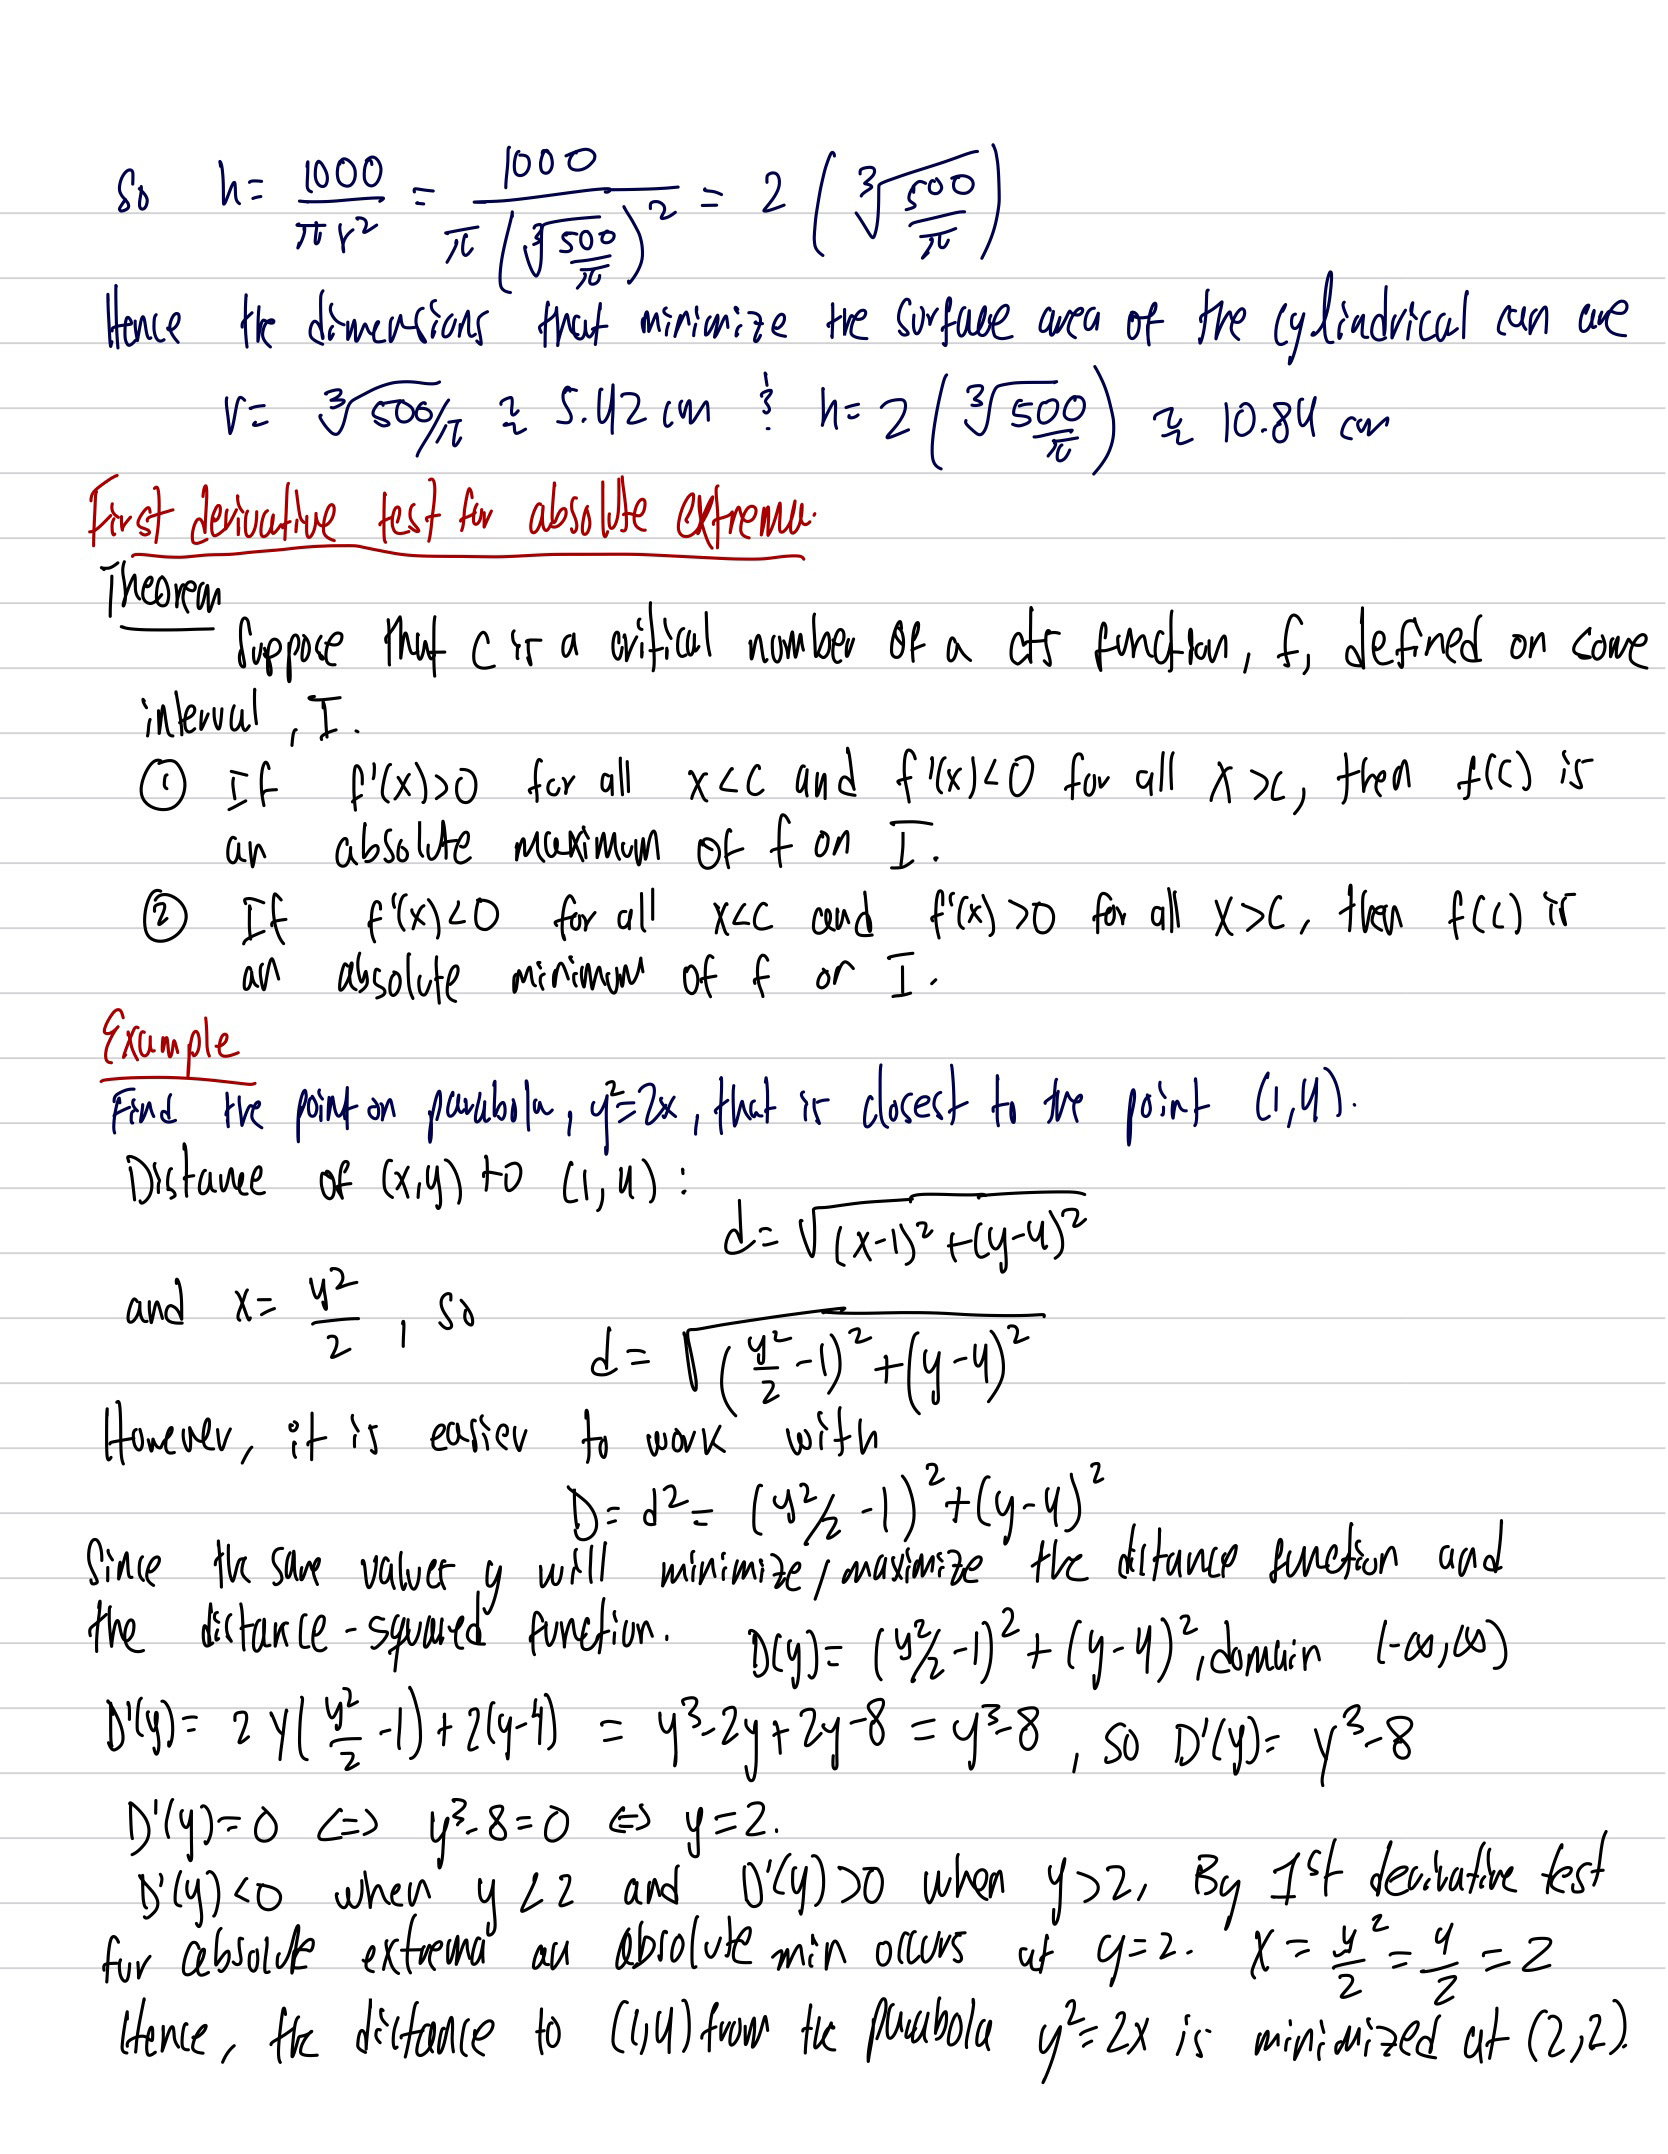 So h = 1000/πr² = 1000/π(∛(500/π))² = 2(∛(500/π))
Hence the dimensions that minimize the surface area of the cylindrical can are
r = ∛(500/π) ≈ 5.42 cm & h = 2(∛(500/π)) ≈ 10.84 cm
First derivative test for absolute extrema.
Theorem
Suppose that c is a critical number of a cts function, f, defined on some
interval, I.
① If f'(x)>0 for all x<c and f'(x)<0 for all x>c, then f(c) is
an absolute maximum of f on I.
② If f'(x)<0 for all x<c and f'(x)>0 for all x>c, then f(c) is
an absolute minimum of f on I.
Example
Find the point on parabola, y²=2x, that is closest to the point (1,4).
Distance of (x,y) to (1,4):
d = √((x-1)²+(y-4)²)
and x = y²/2, so
d = √((y²/2 -1)²+(y-4)²)
However, it is easier to work with
D = d² = (y²/2 -1)²+(y-4)²
Since the same values y will minimize/maximize the distance function and
the distance-squared function. D(y) = (y²/2 -1)² + (y-4)², domain (-∞,∞)
D'(y) = 2y(y²/2 -1)+2(y-4) = y³-2y+2y-8 = y³-8, so D'(y) = y³-8
D'(y)=0 <=> y³-8=0 <=> y=2.
D'(y)<0 when y<2 and D'(y)>0 when y>2, By 1st derivative test
for absolute extrema an absolute min occurs at y=2. x = y²/2 = 4/2 = 2
Hence, the distance to (1,4) from the parabola y²=2x is minimized at (2,2).